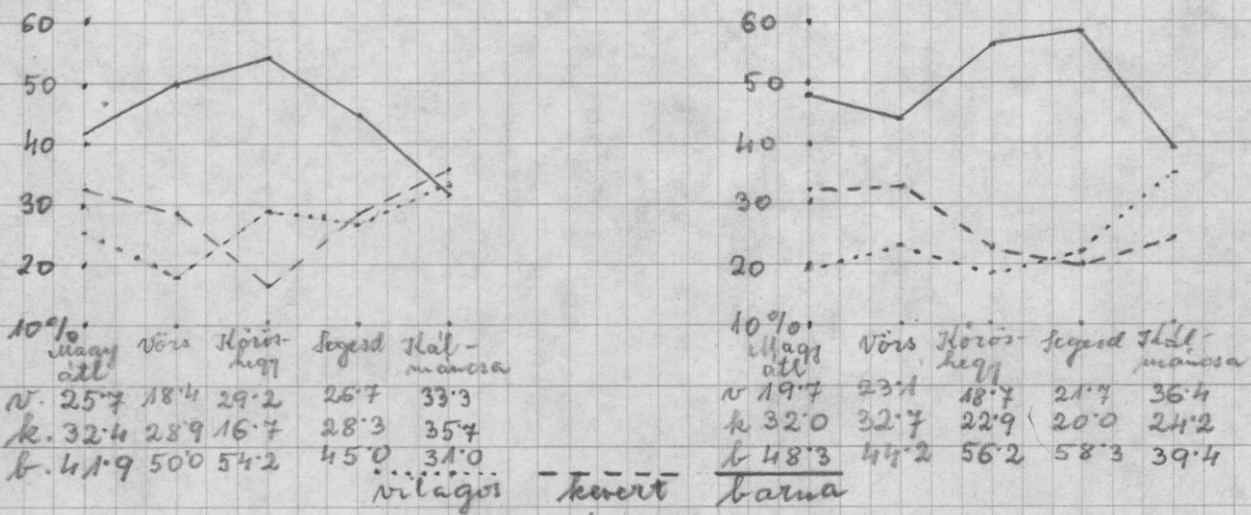 60
50
40
30
20
10%
Magy átl Vörs Kőröshegy Segesd Kálmáncsa
v. 25·7 18·4 29·2 26·7 33·3
k. 32·4 28·9 16·7 28·3 35·7
b. 41·9 50·0 54·2 45·0 31·0
60
50
40
30
20
10%
Magy átl Vörs Kőröshegy Segesd Kálmáncsa
v 19·7 23·1 18·7 21·7 36·4
k 32·0 32·7 22·9 20·0 24·2
b 48·3 44·2 56·2 58·3 39·4
világos kevert barna